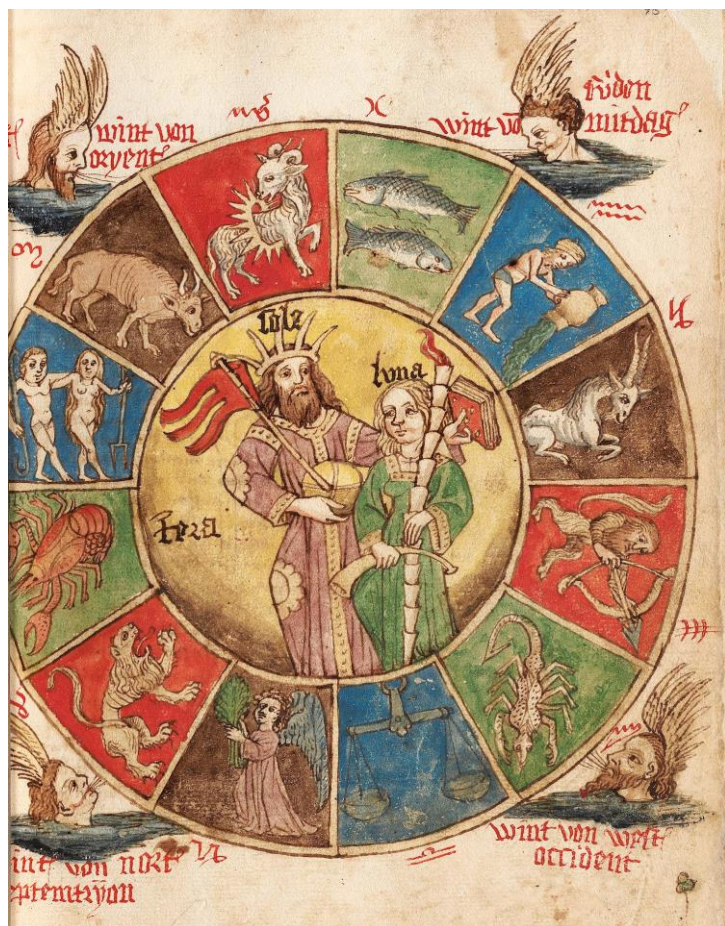 wint von
oryent
wint vō
sūden
mitdag
sole
luna
wint von west
occident
int von nort
eptemtryon